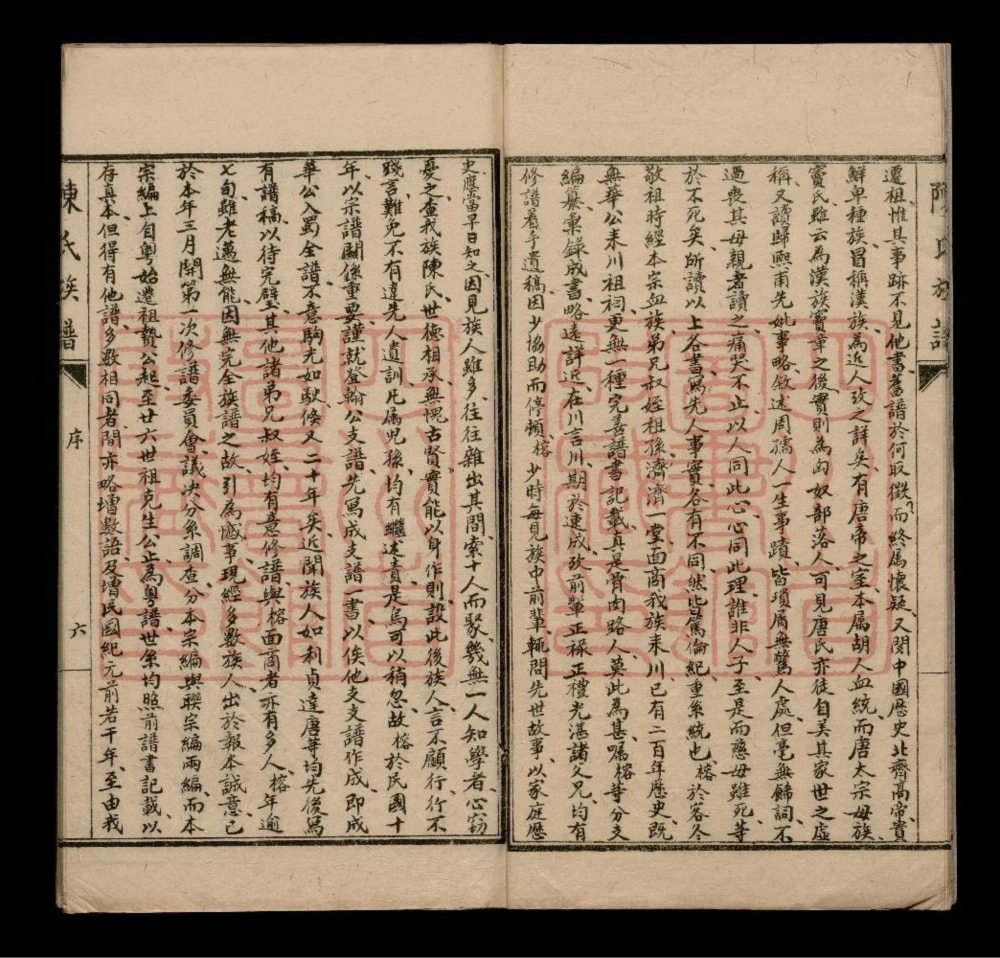 遷祖惟其事跡不見他書舊譜於何取徵而終屬懷疑又閱中國歷史北齊高帝實
鮮卑種族冒稱漢族為近人攷之詳矣有唐帝之室本屬胡人血統而唐太宗母族
竇氏雖云為漢族竇章之後實則為匈奴部落人可見唐氏亦徒自美其家世之虛
稱又讀歸熙甫先妣事略敘述周孺人一生事蹟皆瑣屑無驚人處但毫無飾詞不
過喪其母親者讀之痛哭不止以人同此心心同此理誰非人子至是而慈母雖死等
於不死矣所讀以上各書寫先人事實各有不同然皆篤倫紀重系統也榕於客冬
敬祖時經本宗血族弟兄叔姪祖孫濟濟一堂面商我族來川已有二百年歷史既
無華公來川祖祠更無一種完善譜書記載真是骨肉路人莫此為甚嘱榕等分支
編纂彙錄成書略遠詳近在川言川期於速成攷前輩正祿正禮光湛諸父兄均有
修譜着手遺稿因少協助而停頓榕少時每見族中前輩輒問先世故事以家庭歷
史應當早日知之因見族人雖多往往雜出其間索十人而聚幾無一人知學者心竊
憂之查我族陳氏世德相承無愧古賢實能以身作則設此後族人言不顧行行不
踐言難免不有違先人遺訓凡屬兒孫均有繼述責是烏可以稍忽故榕於民國十
年以宗譜關係重要謹就登翰公支譜先寫成支譜一書以俟他支支譜作成即成
華公入蜀全譜不意駒光如駛倏又二十年矣近聞族人如利貞達唐等均先後寫
有譜稿以待完璧其他諸弟兄叔姪均有意修譜與榕面商者亦有多人榕年逾
七旬雖老邁無能因無完全族譜之故引為憾事現經多數族人出於報本誠意已
於本年三月開第一次修譜委員會議決分系調查分本宗編與聯宗編兩編而本
宗編上自粵始遷祖贄公起至廿六世祖克生公止為粵譜世系均照前譜書記載以
存真本但得有他譜多數相同者間亦略增數語及增民國紀元前若干年至由我
陳氏族譜
序
六
陳氏族譜